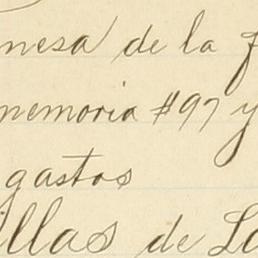 mesa de la f
memoria #97 y
gastos
illas de La